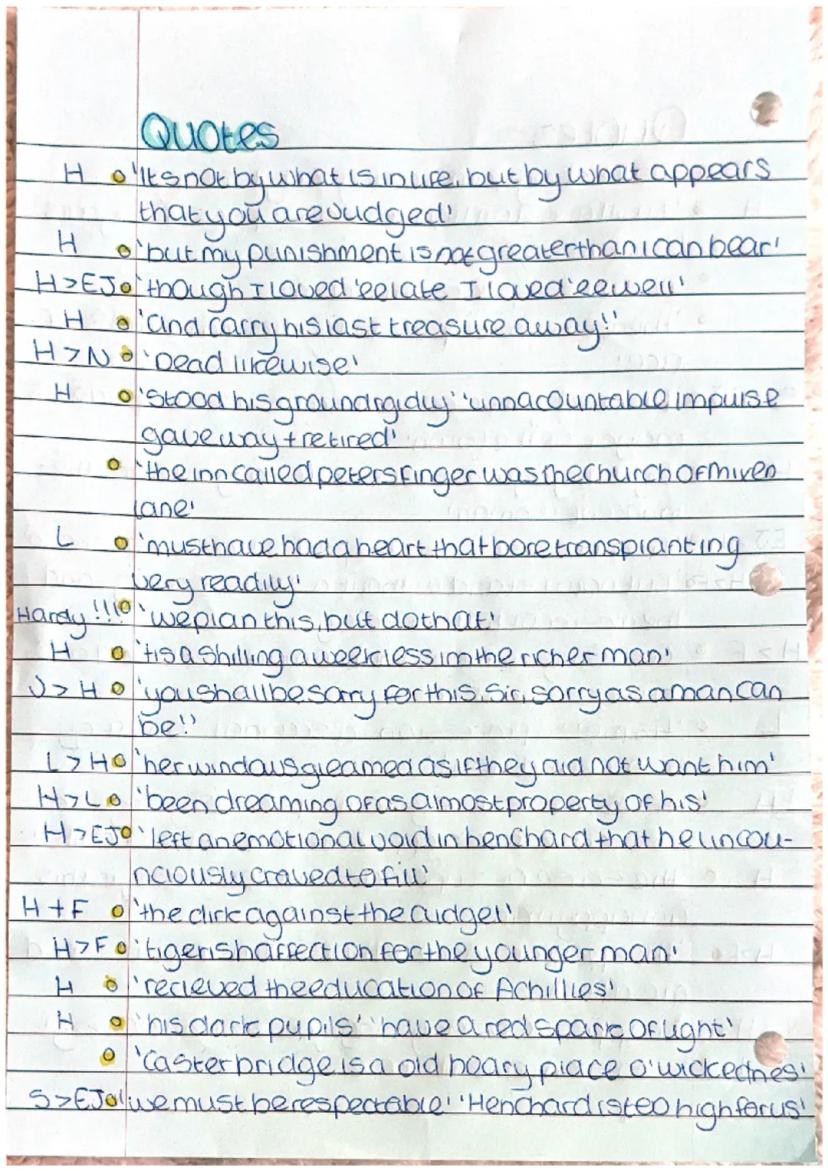 Quotes
H 'It's not by what is in life, but by what appears
that you are judged'
H 'but my punishment is not greater than I can bear'
H>EJ 'though I loved 'ee late I loved 'ee well'
H 'and carry his last treasure away!'
H>N 'Dead likewise'
H 'Stood his ground rigidly' 'unnacountable impulse
gave way + retired'
'the inn called peters finger was the church of mixen
lane'
L 'must have had a heart that bore transplanting
very readily'
Hardy!!! 'we plan this, but do that'
H 'tis a shilling a week less im the richer man'
J>H 'you shall be sorry for this, Sir, sorry as a man can
be!'
L>H 'her windows gleamed as if they did not want him'
H>L 'been dreaming of as almost property of his'
H>EJ 'left an emotional void in henchard that he uncou-
nciously craved to fill'
H+F 'the dirk against the cudgel'
H>F 'tigerish affection for the younger man'
H 'recieved the education of Achillies'
H 'his dark pupils' 'have a red spark of light'
'Casterbridge is a old hoary place o'wickednes'
S>EJ 'we must be respectable' 'Henchard is too high for us'